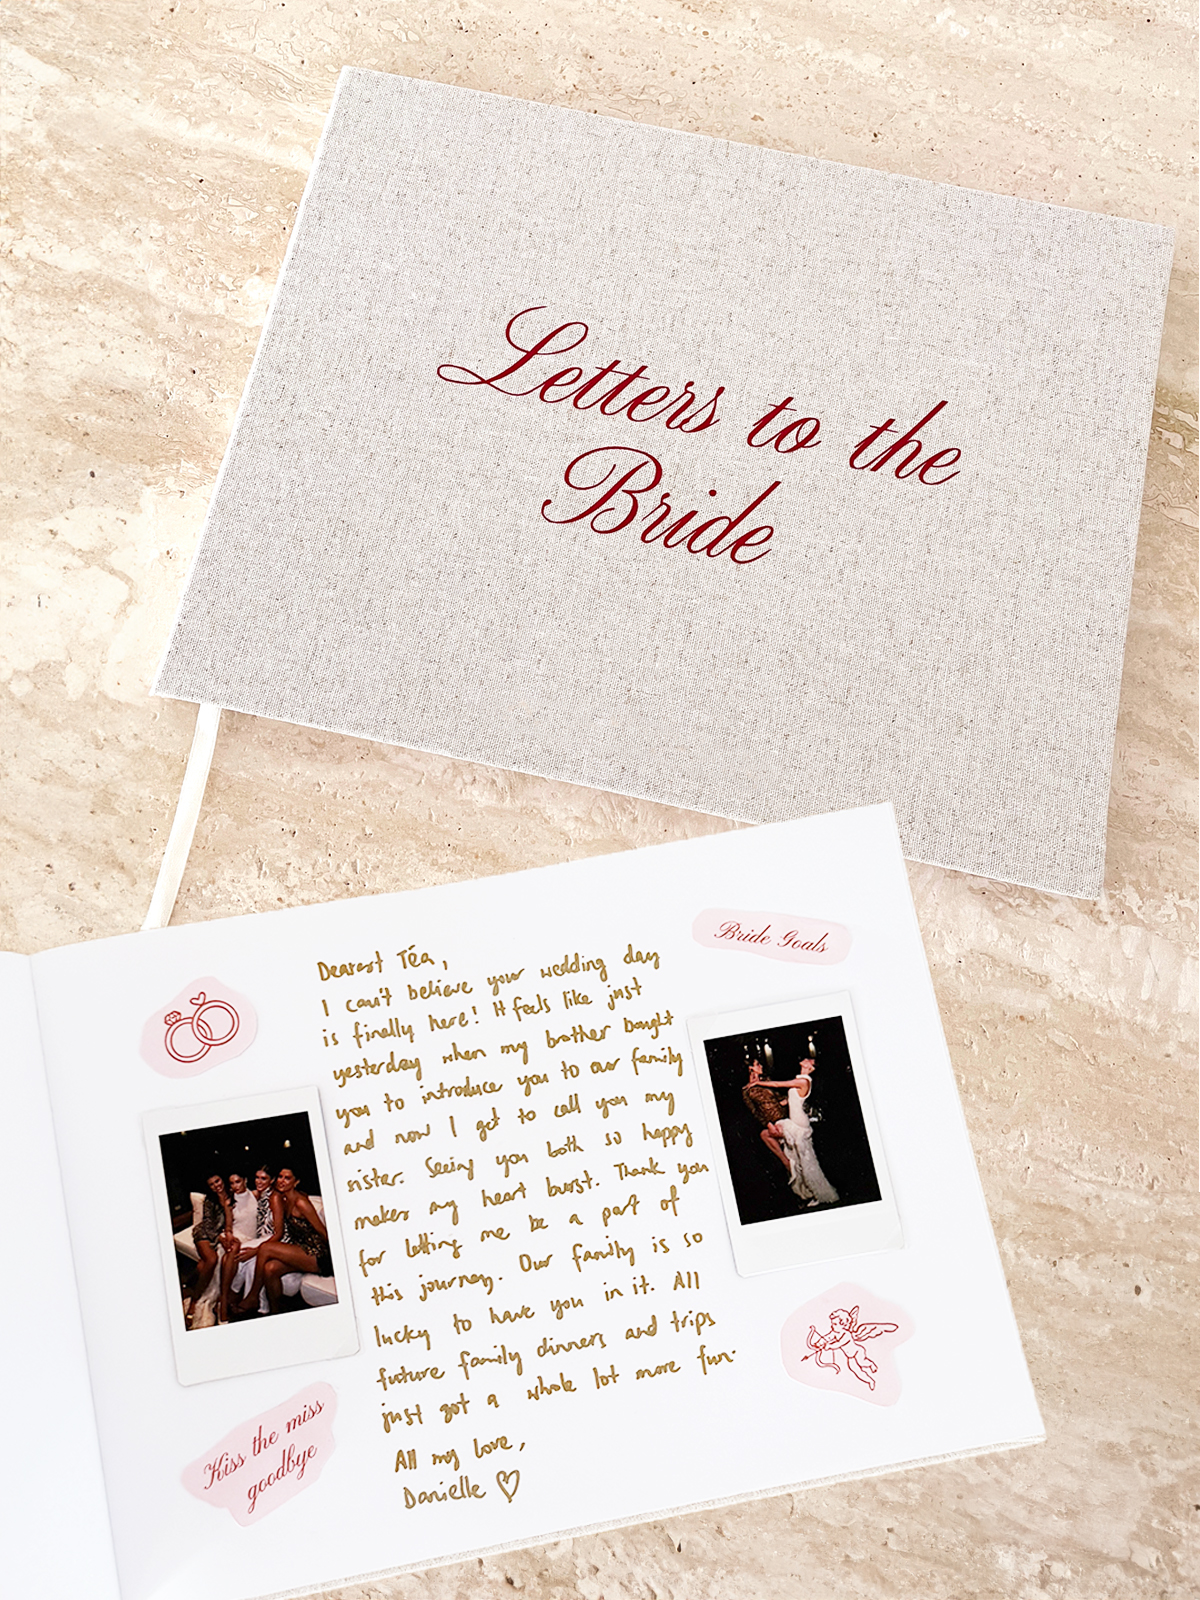 Letters to the
Bride
Bride Goals
Dearest Téa,
I can't believe your wedding day
is finally here! It feels like just
yesterday when my brother bought
you to introduce you to our family
and now I get to call you my
sister. Seeing you both so happy
makes my heart burst. Thank you
for letting me be a part of
this journey. Our family is so
lucky to have you in it. All
future family dinners and trips
just got a whole lot more fun.
All my love,
Danielle ♡
Kiss the miss
goodbye